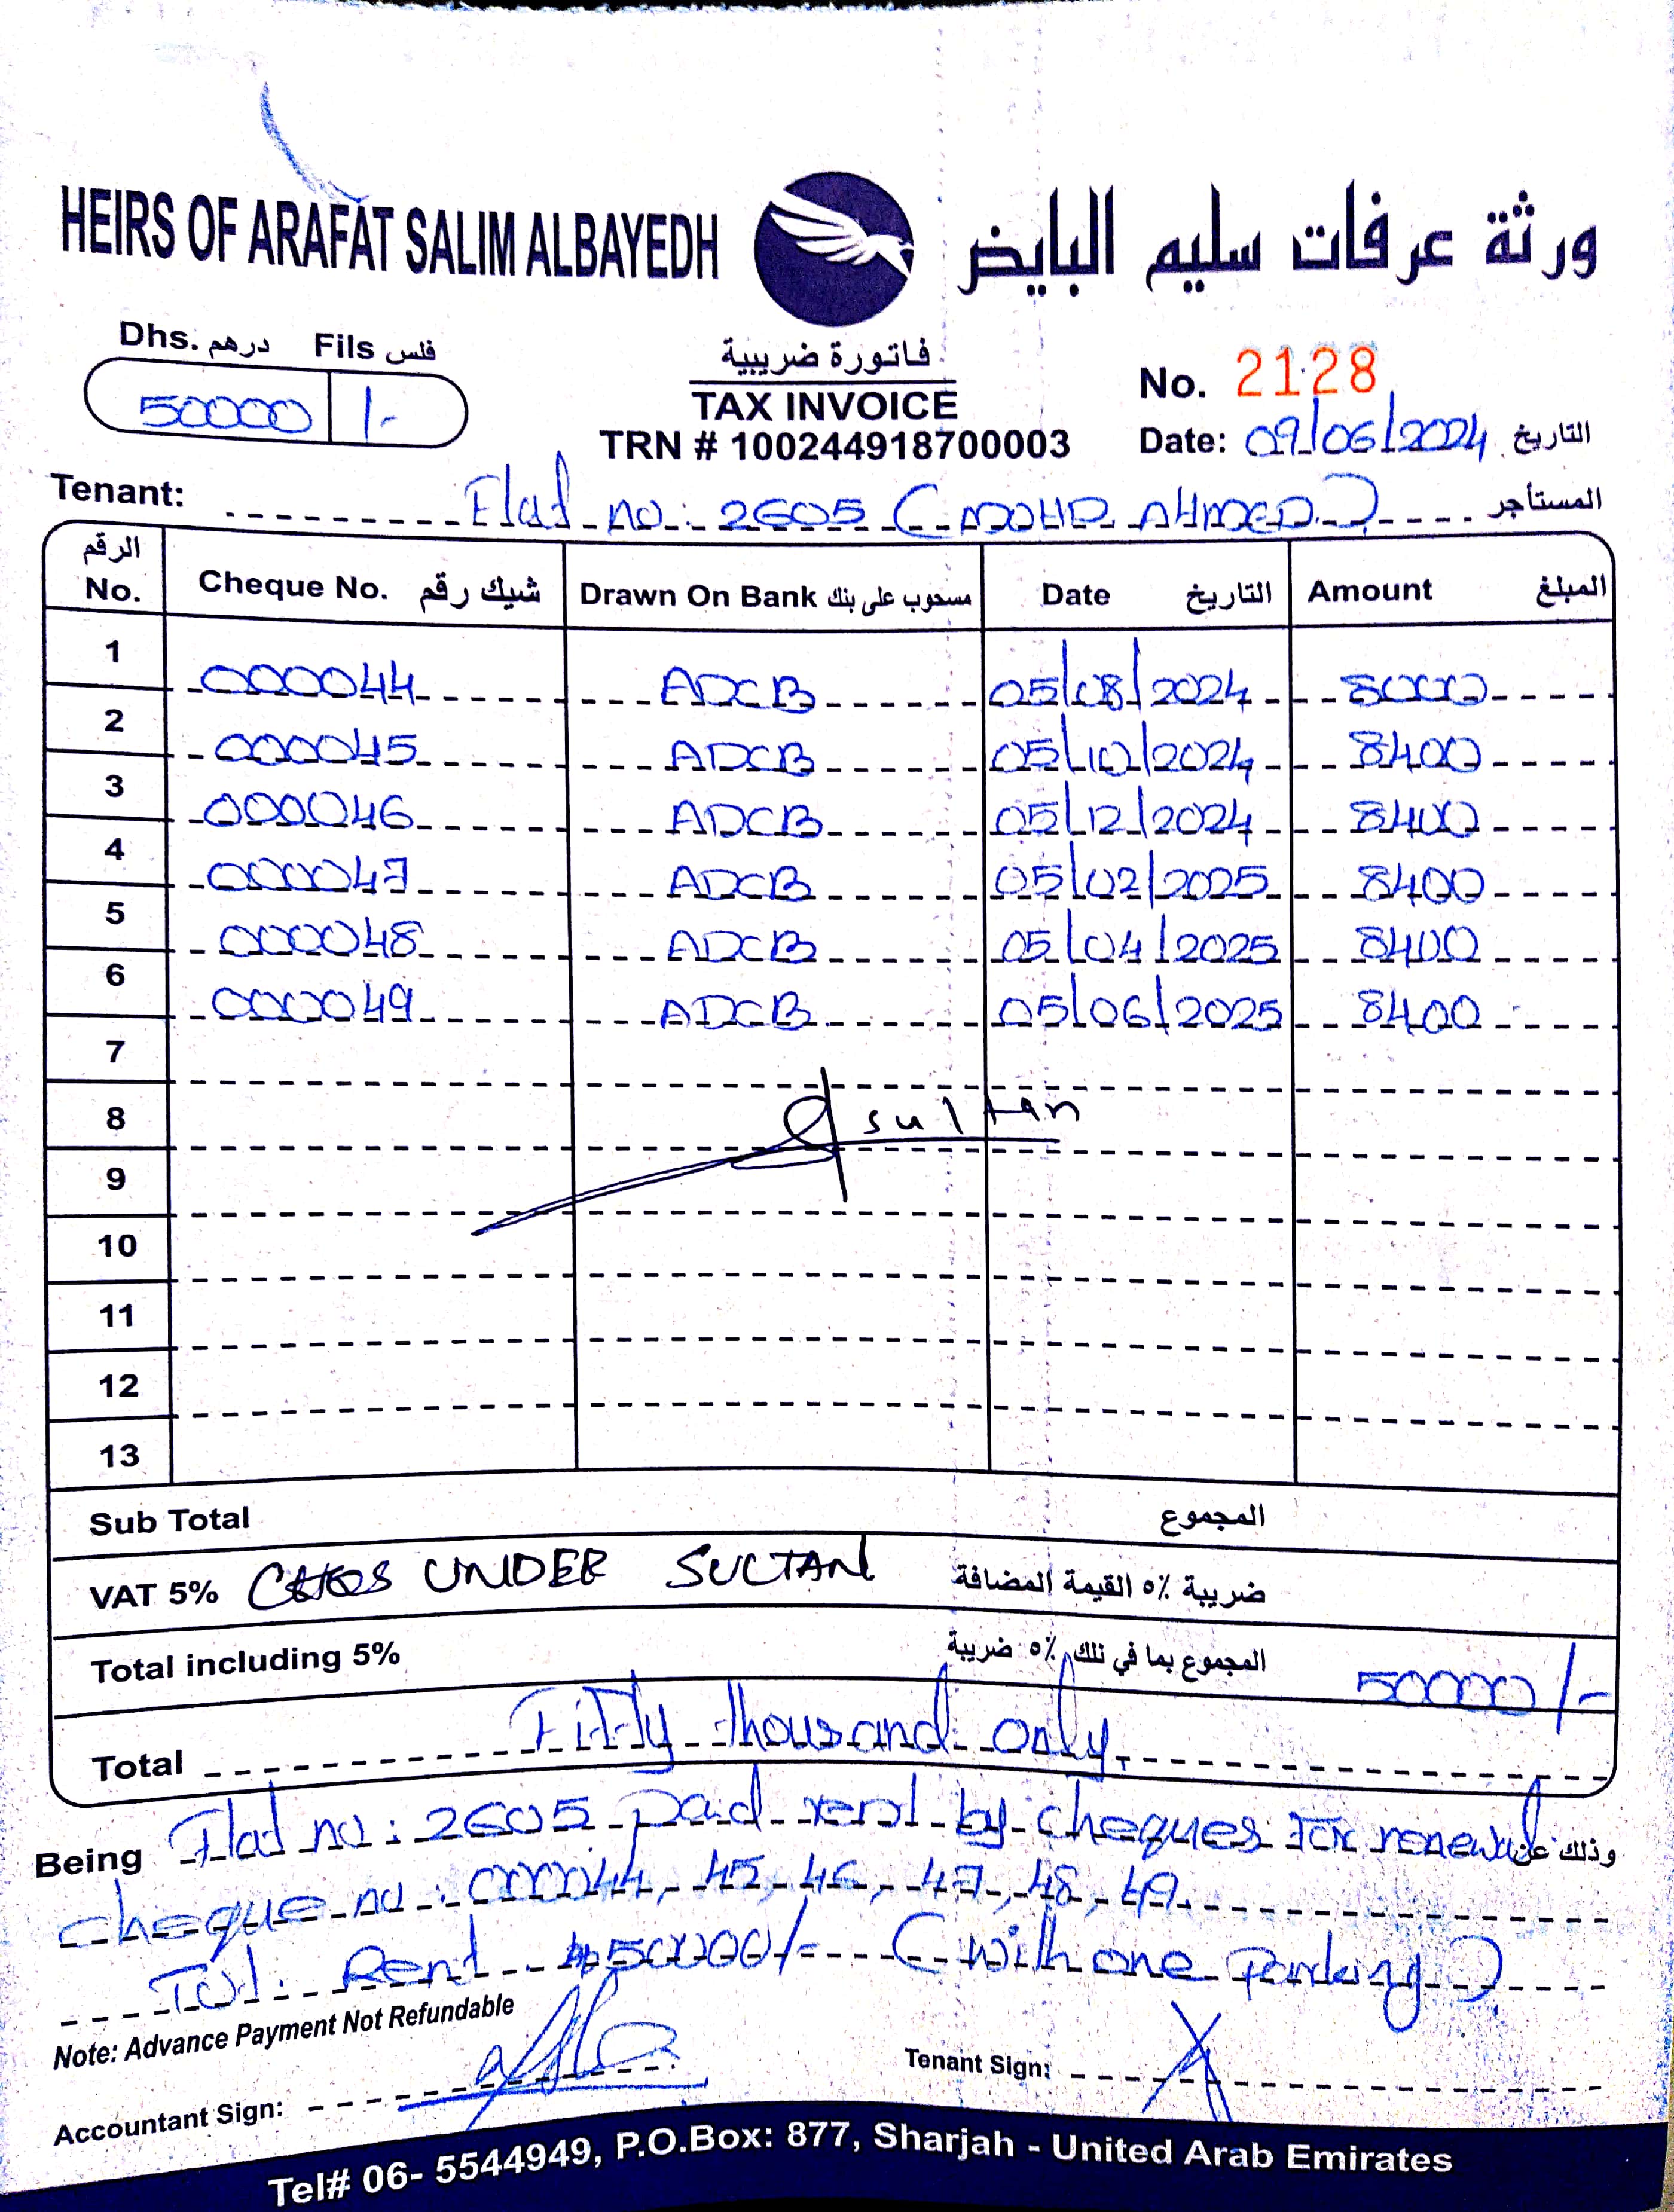 HEIRS OF ARAFAT SALIM ALBAYEDH ورثة عرفات سليم البايض
Dhs. درهم Fils فلس
50000 /-
فاتورة ضريبية
TAX INVOICE
TRN # 100244918700003
No. 2128
Date: 09/06/2024 التاريخ
Tenant: Flat no: 2605 (MOHD AHMED) المستأجر
الرقم No. Cheque No. شيك رقم Drawn On Bank مسحوب على بنك Date التاريخ Amount المبلغ
1 000044 ADCB 05/08/2024 8000
2 000045 ADCB 05/10/2024 8400
3 000046 ADCB 05/12/2024 8400
4 000047 ADCB 05/02/2025 8400
5 000048 ADCB 05/04/2025 8400
6 000049 ADCB 05/06/2025 8400
7
8 sultan
9
10
11
12
13
Sub Total المجموع
VAT 5% UNDER SULTAN ضريبة ٥٪ القيمة المضافة
Total including 5% المجموع بما في ذلك ٥٪ ضريبة 50000/-
Total Fifty thousand only.
Being Flat no: 2605 paid rent by cheques for renewal وذلك عن
cheque no: 000044, 45, 46, 47, 48, 49.
Tot. Rent 50000/- (with one parking)
Note: Advance Payment Not Refundable
Accountant Sign:
Tenant Sign:
Tel# 06- 5544949, P.O.Box: 877, Sharjah - United Arab Emirates